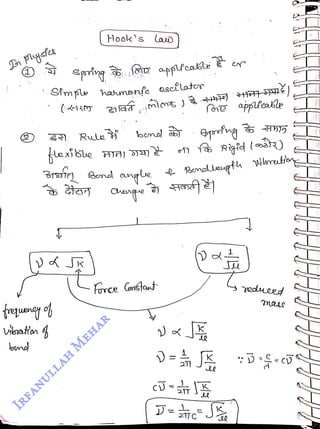 Hook's Law
In physics
① ये spring के लिए applicable है or
simple harmonic oscilator
(सरल आवर्ती लोलक) के लिए applicable
② इस Rule में bond को spring के समान
flexible माना गया है ना कि Rigid (कठोर)
अर्थात् Bond angle & Bondlength vibration
के दौरान change हो सकती है।
ν ∝ √K
ν ∝ 1/√μ
Force Constant
reduced
mass
frequency of
vibration of
bond
ν ∝ √K/μ
ν = 1/2π √K/μ
∵ ν = c/λ = cν̄
cν̄ = 1/2π √K/μ
ν̄ = 1/2πc √K/μ
IRFANULLAH MEHAR